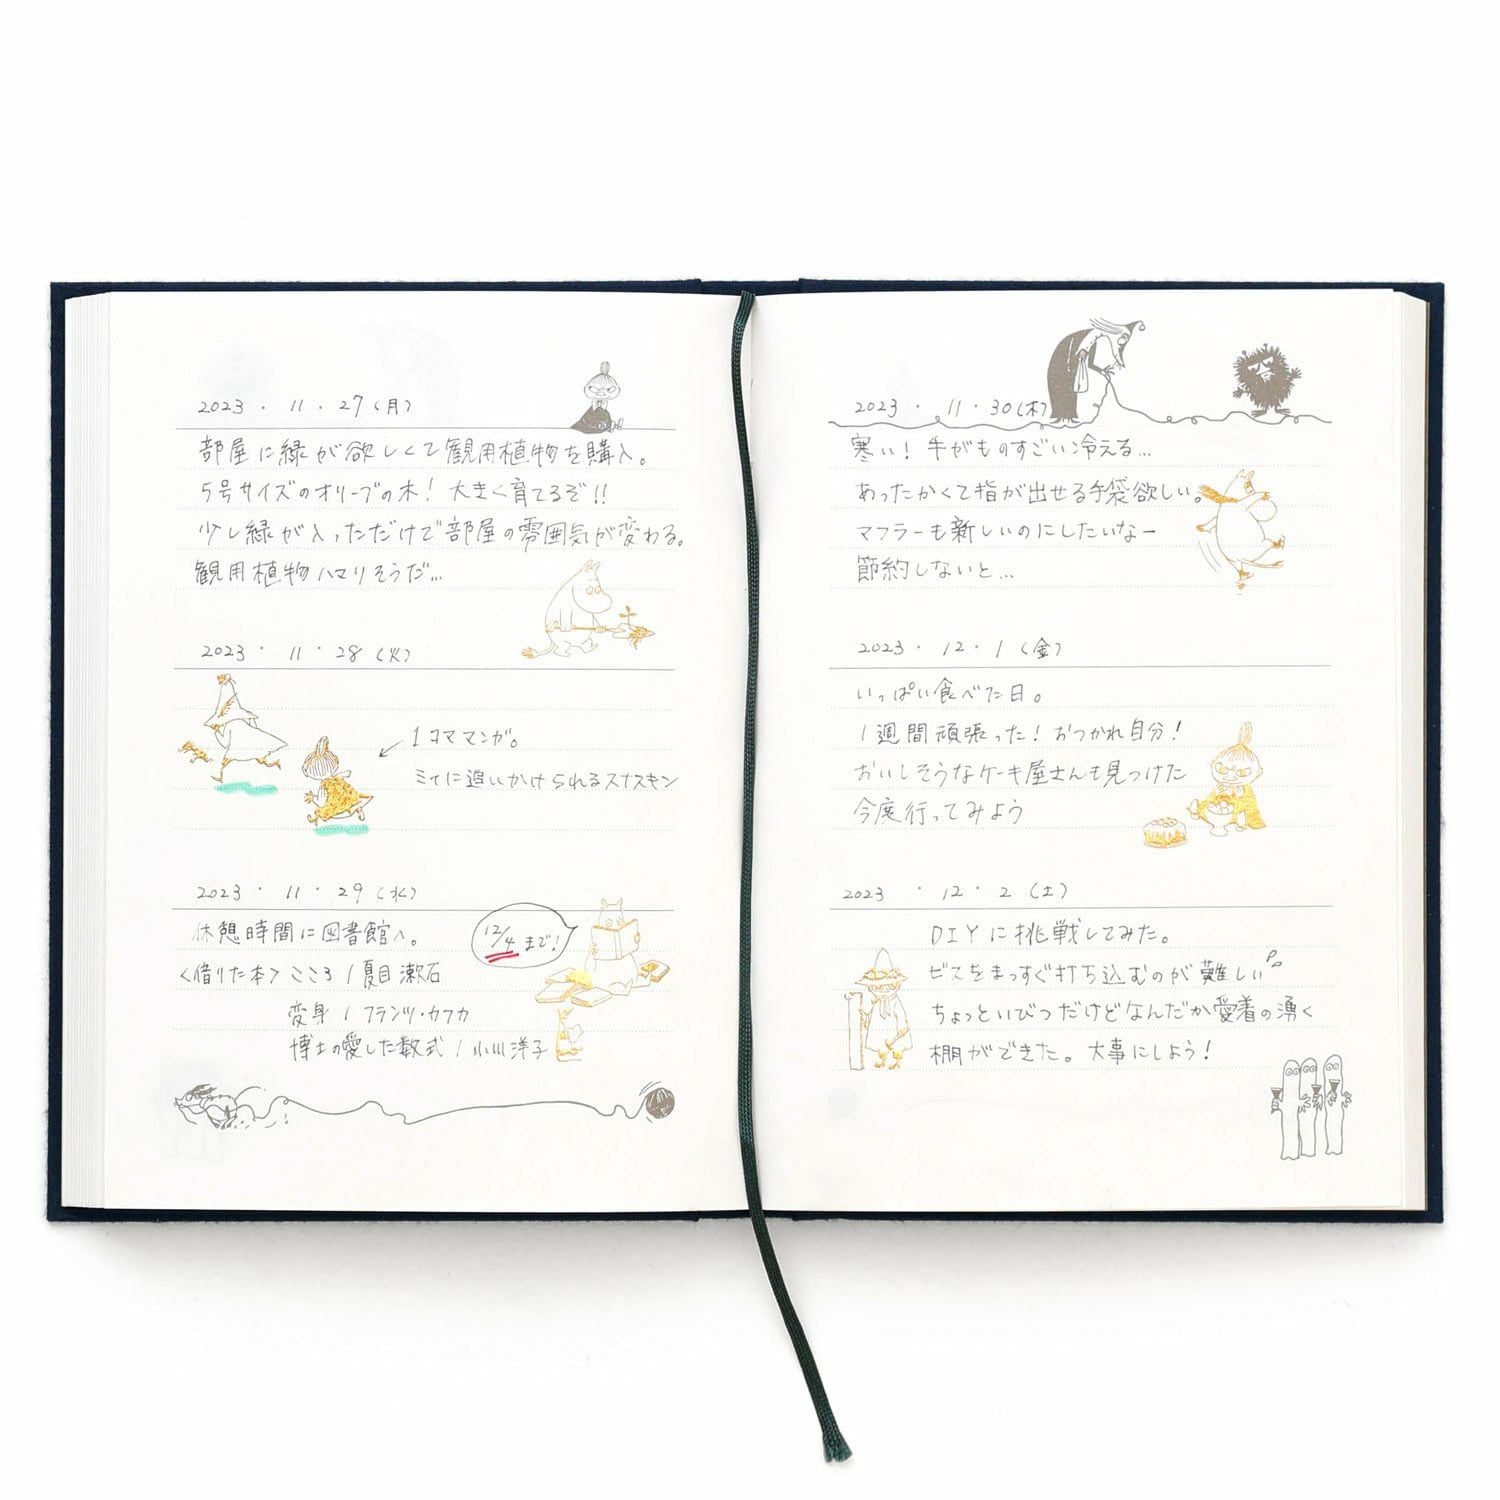 2023 ・ 11 ・ 27(月)
部屋に緑が欲しくて観用植物を購入。
5号サイズのオリーブの木！大きく育てるぞ!!
少し緑が入っただけで部屋の雰囲気が変わる。
観用植物ハマりそうだ…
2023 ・ 11 ・ 28(火)
←1コママンガ。
ミイに追いかけられるスナスキン
2023 ・ 11 ・ 29(水)
休憩時間に図書館へ。
12/4 まで！
<借りた本> こころ / 夏目漱石
変身 / フランツ・カフカ
博士の愛した数式 / 小川洋子
2023 ・ 11 ・ 30(木)
寒い！手がものすごい冷える…
あったかくて指が出せる手袋欲しい。
マフラーも新しいのにしたいなー
節約しないと…
2023 ・ 12 ・ 1(金)
いっぱい食べた日。
1週間頑張った！おつかれ自分！
おいしそうなケーキ屋さんも見つけた
今度行ってみよう
2023 ・ 12 ・ 2(土)
DIYに挑戦してみた。
ビスをまっすぐ打ち込むのが難しい
ちょっといびつだけどなんだか愛着の湧く
棚ができた。大事にしよう！